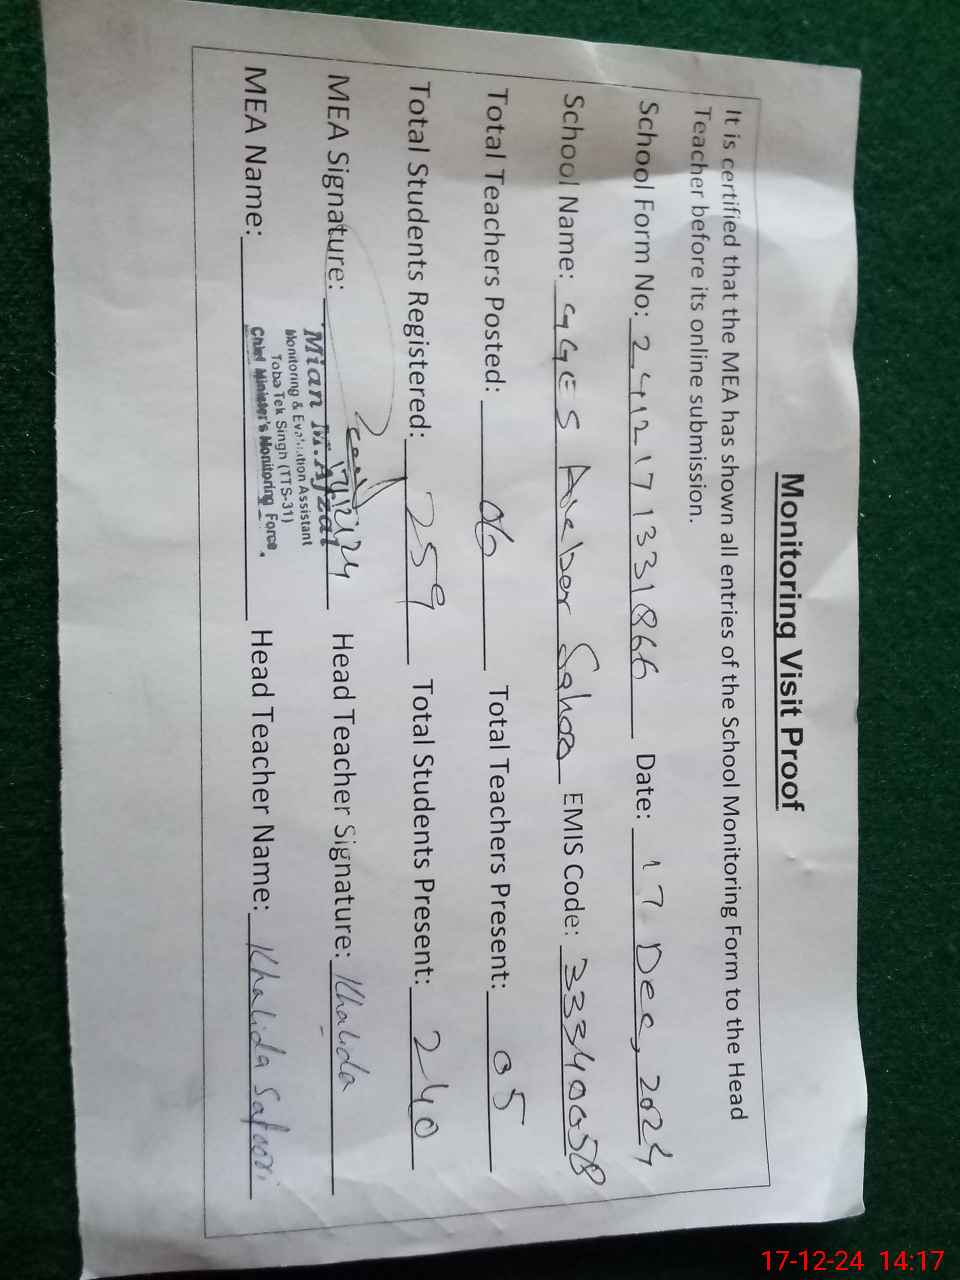 Monitoring Visit Proof
It is certified that the MEA has shown all entries of the School Monitoring Form to the Head
Teacher before its online submission.
School Form No: 2412171331866 Date: 17 Dec, 2024
School Name: GGES Akbar EMIS Code: 33340058
Total Teachers Posted: 06 Total Teachers Present: 05
Total Students Registered: 259 Total Students Present: 240
MEA Signature: 17/12/24 Head Teacher Signature: Khalida
Mian M. Afzal
Monitoring & Evaluation Assistant
Toba Tek Singh (TTS-31)
Chief Minister's Monitoring Force
MEA Name: Head Teacher Name: Khalida
17-12-24 14:17